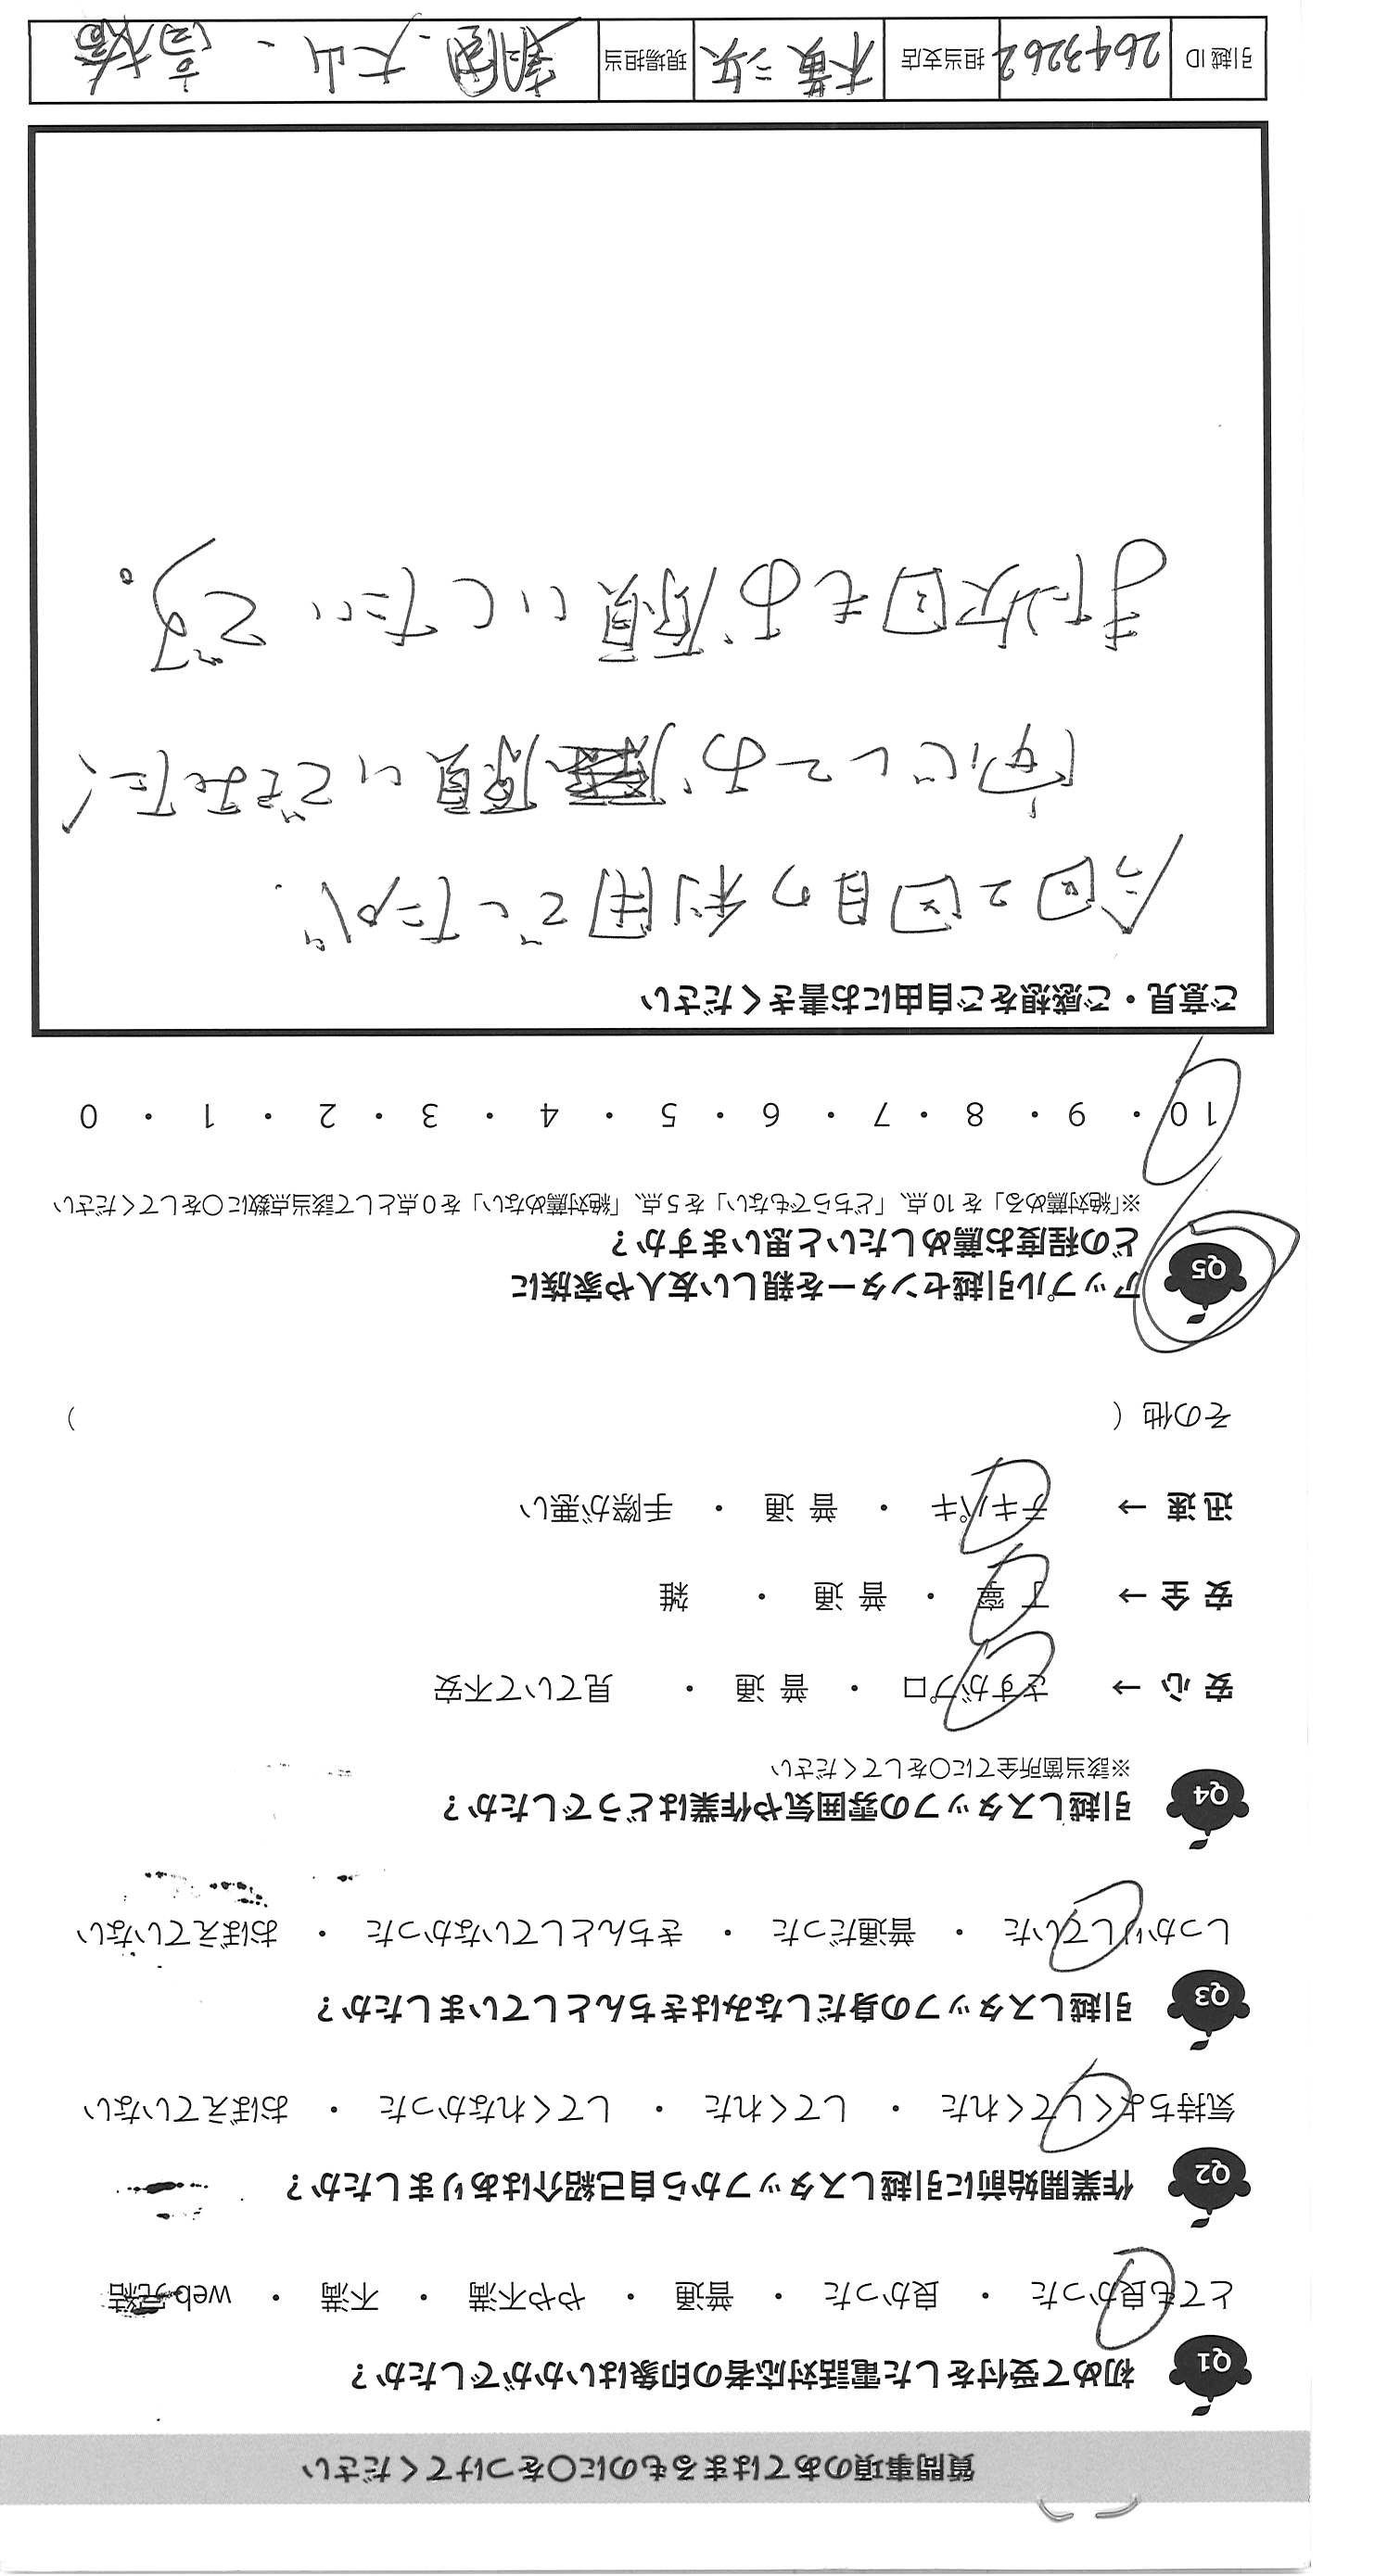 質問事項のあてはまるものに○をつけてください
Q1 初めて受付をした電話対応者の印象はいかがでしたか？
とても良かった ・ 良かった ・ 普通 ・ やや不満 ・ 不満 ・ web完結
Q2 作業開始前に引越しスタッフから自己紹介はありましたか？
気持ちよくしてくれた ・ してくれた ・ してくれなかった ・ おぼえていない
Q3 引越しスタッフの身だしなみはきちんとしていましたか？
しっかりしていた ・ 普通だった ・ きちんとしていなかった ・ おぼえていない
Q4 引越しスタッフの雰囲気や作業はどうでしたか？
※該当箇所全てに○をしてください
安心 → さすがプロ ・ 普通 ・ 見ていて不安
安全 → 丁寧 ・ 普通 ・ 雑
迅速 → テキパキ ・ 普通 ・ 手際が悪い
その他（ ）
Q5 アップル引越センターを親しい友人や家族に
どの程度お薦めしたいと思いますか？
※「絶対薦める」を10点、「どちらでもない」を5点、「絶対薦めない」を0点として該当点数に○をしてください
10 ・ 9 ・ 8 ・ 7 ・ 6 ・ 5 ・ 4 ・ 3 ・ 2 ・ 1 ・ 0
ご意見・ご感想をご自由にお書きください
今回2回目の利用でしたが、
安心してお願いできました！
また次回もお願いしたいです。
引越ID 2643262 担当支店 横浜 現場担当 朝国、大山、高橋